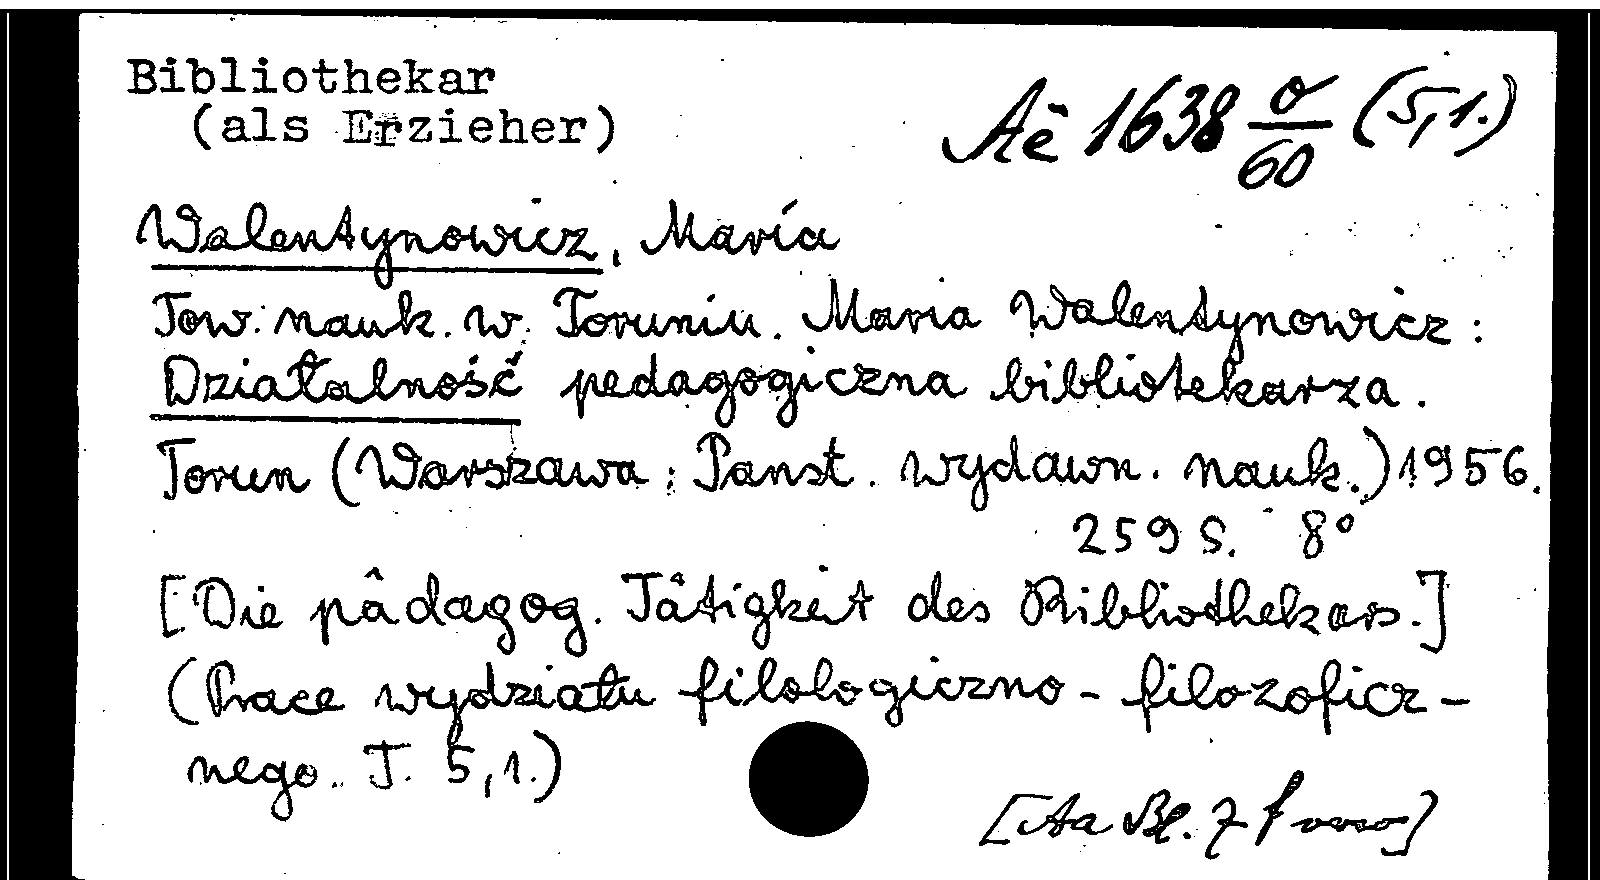 Bibliothekar
(als Erzieher)
Aë 1638 σ/60 (5,1.)
Walentynowicz, Maria
Tow. nauk. w. Toruniu. Maria Walentynowicz:
Działalność pedagogiczna bibliotekarza.
Torun (Warszawa: Panst. wydawn. nauk.) 1956.
259 S. 8°
[Die pädagog. Tätigkeit des Bibliothekars.]
(Prace wydziału filologiczno-filozoficz-
nego. T. 5,1.)
[Aa Bl. 7